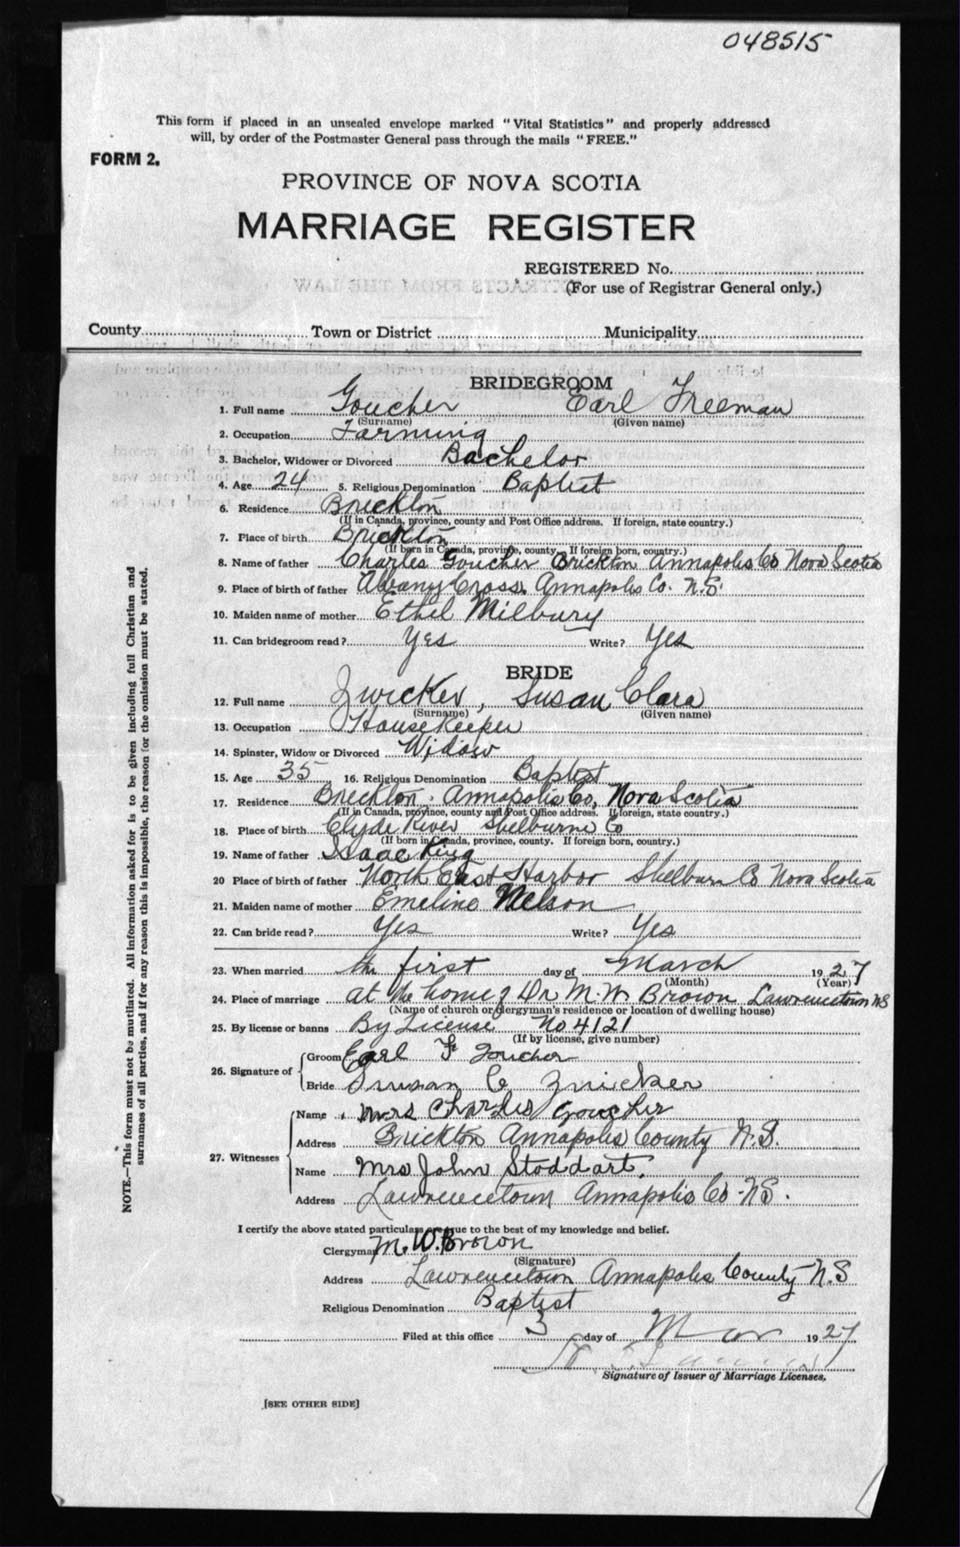 048515
This form if placed in an unsealed envelope marked "Vital Statistics" and properly addressed
will, by order of the Postmaster General pass through the mails "FREE."
FORM 2.
PROVINCE OF NOVA SCOTIA
MARRIAGE REGISTER
REGISTERED No.
(For use of Registrar General only.)
County Town or District Municipality
BRIDEGROOM
1. Full name Goucher Earl Freeman
(Surname) (Given name)
2. Occupation Farming
3. Bachelor, Widower or Divorced Bachelor
4. Age 24 5. Religious Denomination Baptist
6. Residence Brickton
(If in Canada, province, county and Post Office address. If foreign, state country.)
7. Place of birth Brickton
(If born in Canada, province, county. If foreign born, country.)
8. Name of father Charles Goucher Brickton Annapolis Co Nova Scotia
9. Place of birth of father Albany Cross Annapolis Co. N.S.
10. Maiden name of mother Ethel Milbury
11. Can bridegroom read? Yes Write? Yes
BRIDE
12. Full name Zwicker, Susan Clara
(Surname) (Given name)
13. Occupation Housekeeper
14. Spinster, Widow or Divorced Widow
15. Age 35 16. Religious Denomination Baptist
17. Residence Brickton Annapolis Co, Nova Scotia
(If in Canada, province, county and Post Office address. If foreign, state country.)
18. Place of birth Clyde River Shelburne Co
(If born in Canada, province, county. If foreign born, country.)
19. Name of father Isaac King
20 Place of birth of father North East Harbor Shelburn Co Nova Scotia
21. Maiden name of mother Emeline Nelson
22. Can bride read? Yes Write? Yes
23. When married the first day of March 1927
(Month) (Year)
24. Place of marriage at the home of Dr M. W. Brown Lawrencetown NS
(Name of church or clergyman's residence or location of dwelling house)
25. By license or banns By License No 4121
(If by license, give number)
26. Signature of Groom Earl F Goucher
Bride Susan C Zwicker
27. Witnesses Name Mrs Charles Goucher
Address Brickton Annapolis County N.S.
Name Mrs John Stoddart.
Address Lawrencetown Annapolis Co. N.S.
I certify the above stated particulars are true to the best of my knowledge and belief.
Clergyman M. W. Brown
(Signature)
Address Lawrencetown Annapolis County N.S
Religious Denomination Baptist
Filed at this office 3 day of Mar 1927
Signature of Issuer of Marriage Licenses.
[SEE OTHER SIDE]
NOTE.—This form must not be mutilated. All information asked for is to be given including full Christian and
surnames of all parties, and if for any reason this is impossible, the reason for the omission must be stated.